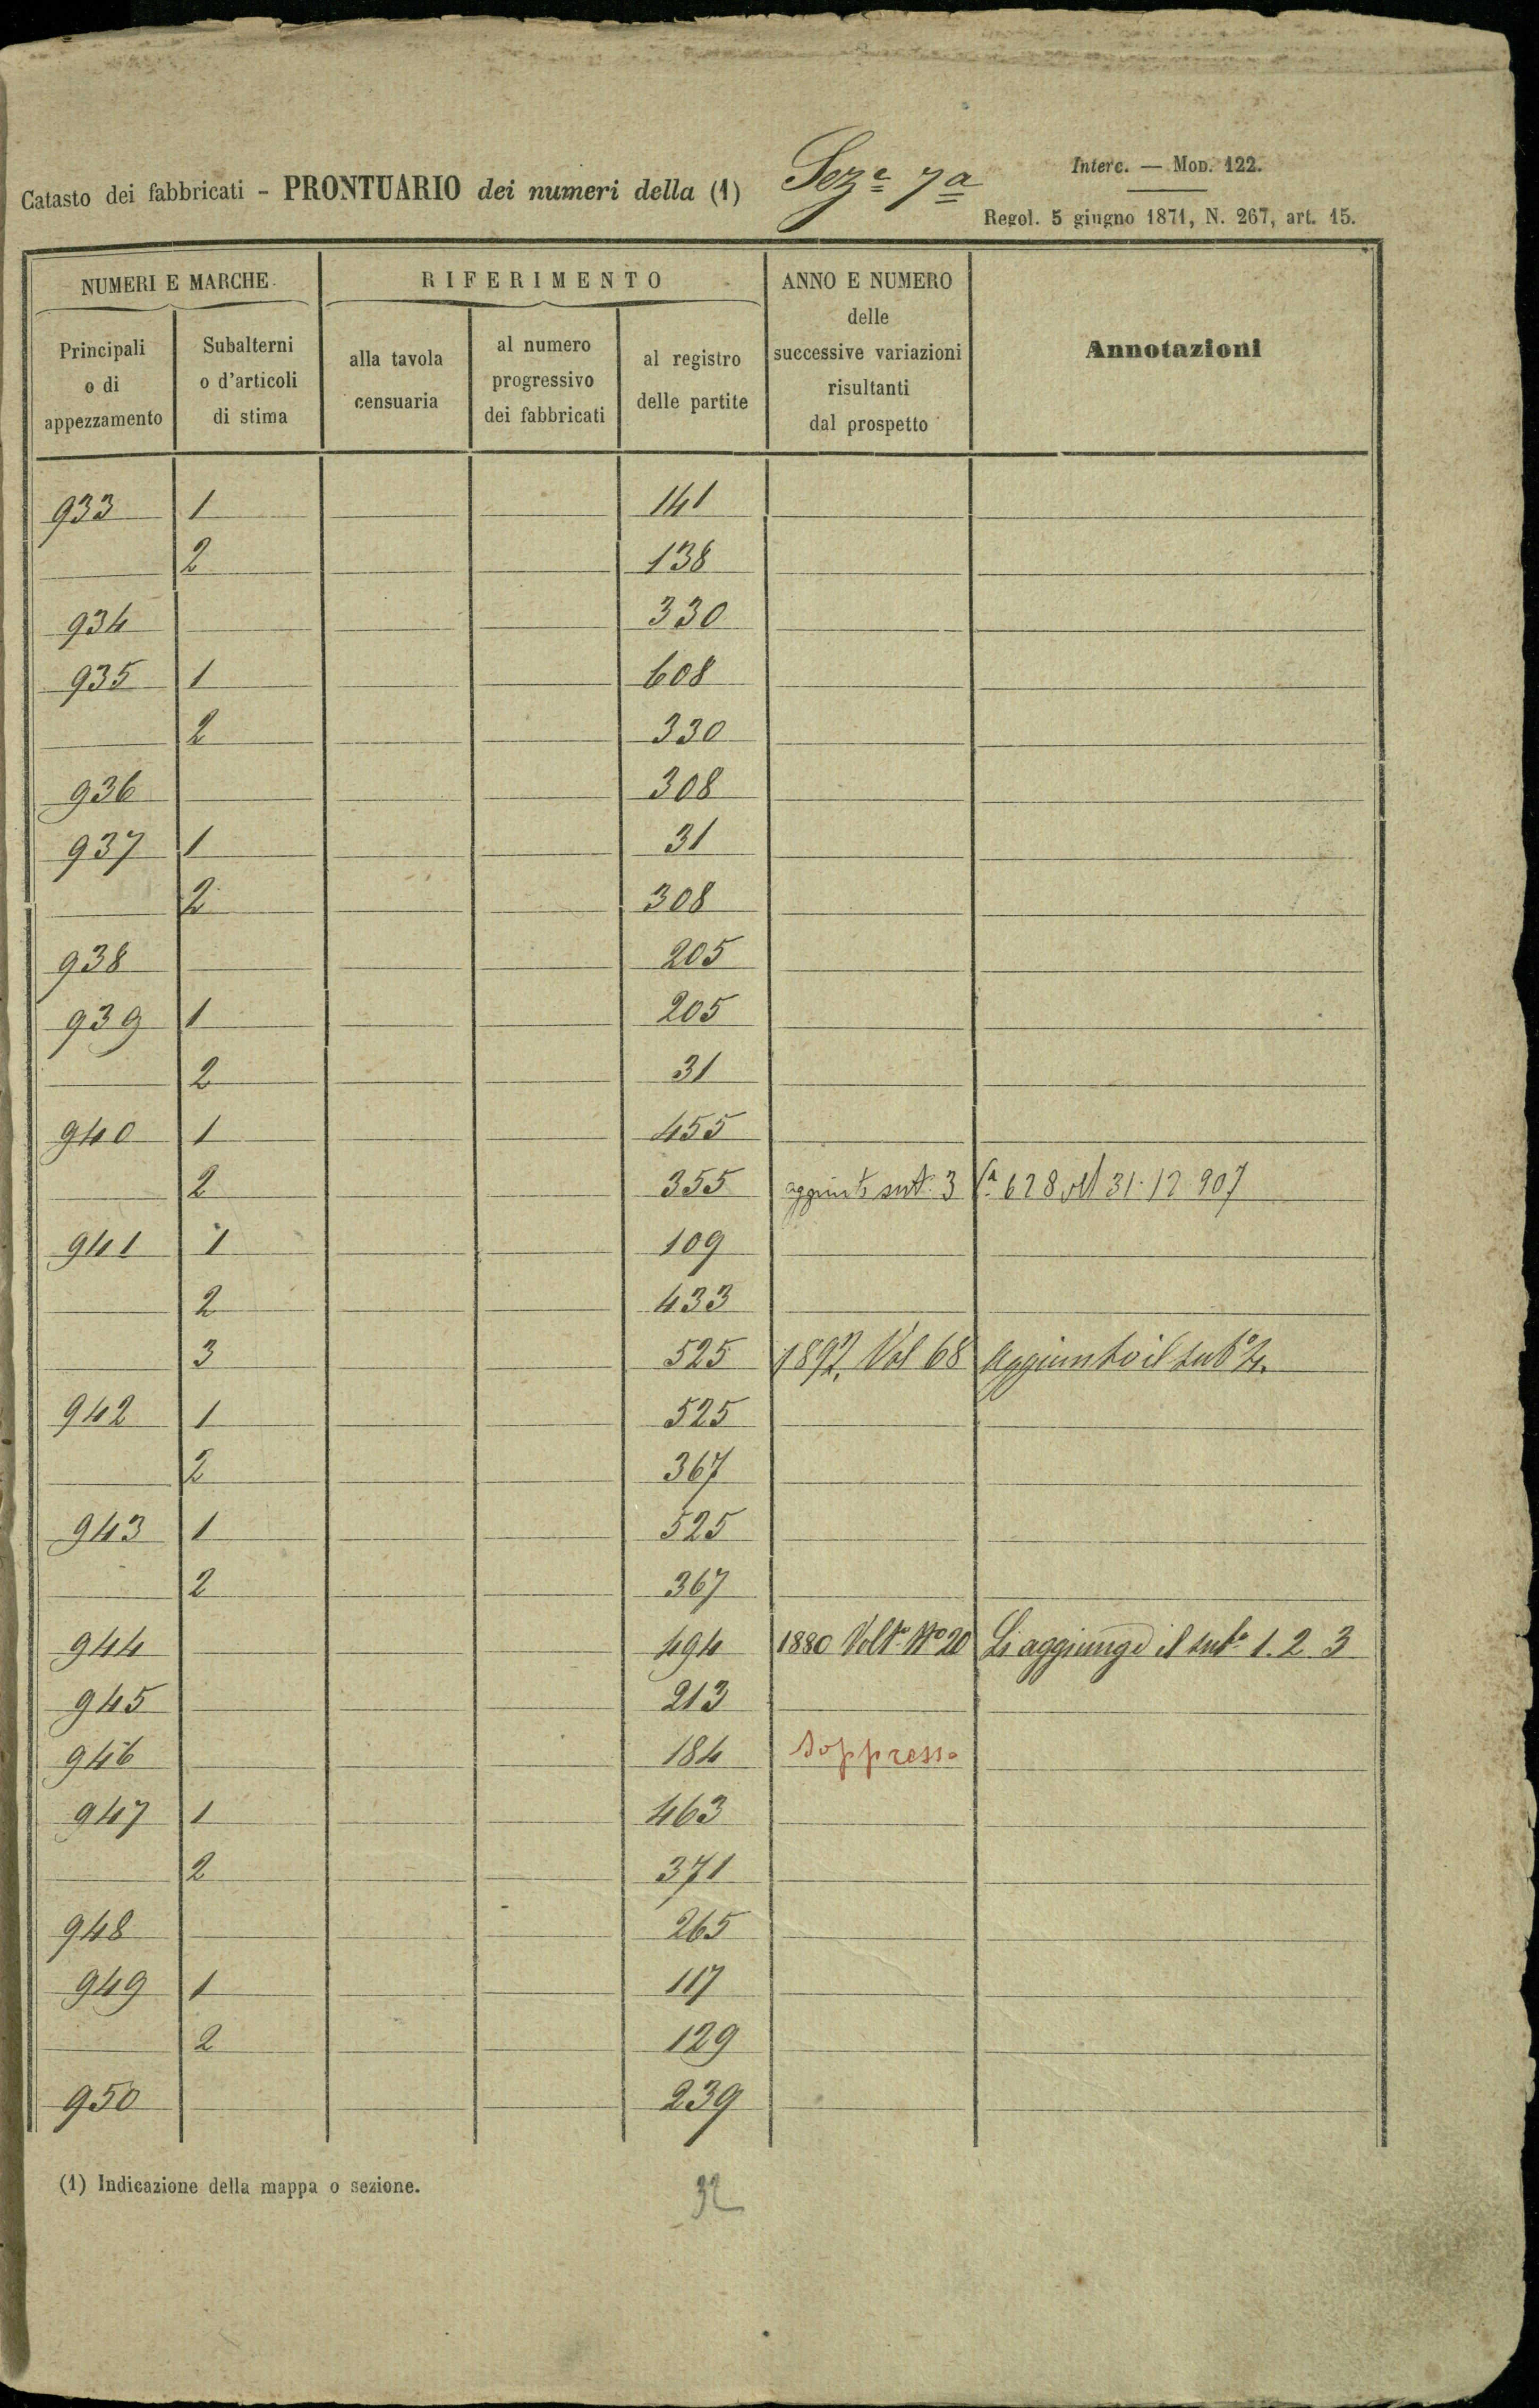 Catasto dei fabbricati - PRONTUARIO dei numeri della (1) Sez.e 7a
Interc. — Mod. 122.
Regol. 5 giugno 1871, N. 267, art. 15.
NUMERI E MARCHE
RIFERIMENTO
ANNO E NUMERO delle successive variazioni risultanti dal prospetto
Annotazioni
Principali o di appezzamento
Subalterni o d'articoli di stima
alla tavola censuaria
al numero progressivo dei fabbricati
al registro delle partite
933 1 141
2 138
934 330
935 1 608
2 330
936 308
937 1 31
2 308
938 205
939 1 205
2 31
940 1 455
2 355 3 628 31.12 907
941 1 109
2 433
3 525 1897, Vol 68 Aggiunto il sub° 4.
942 1 525
2 367
943 1 525
2 367
944 494 1880 N° 20 Si aggiunge il sub° 1. 2. 3
945 213
946 184 Soppresso
947 1 463
2 371
948 265
949 1 117
2 129
950 239
(1) Indicazione della mappa o sezione.
32